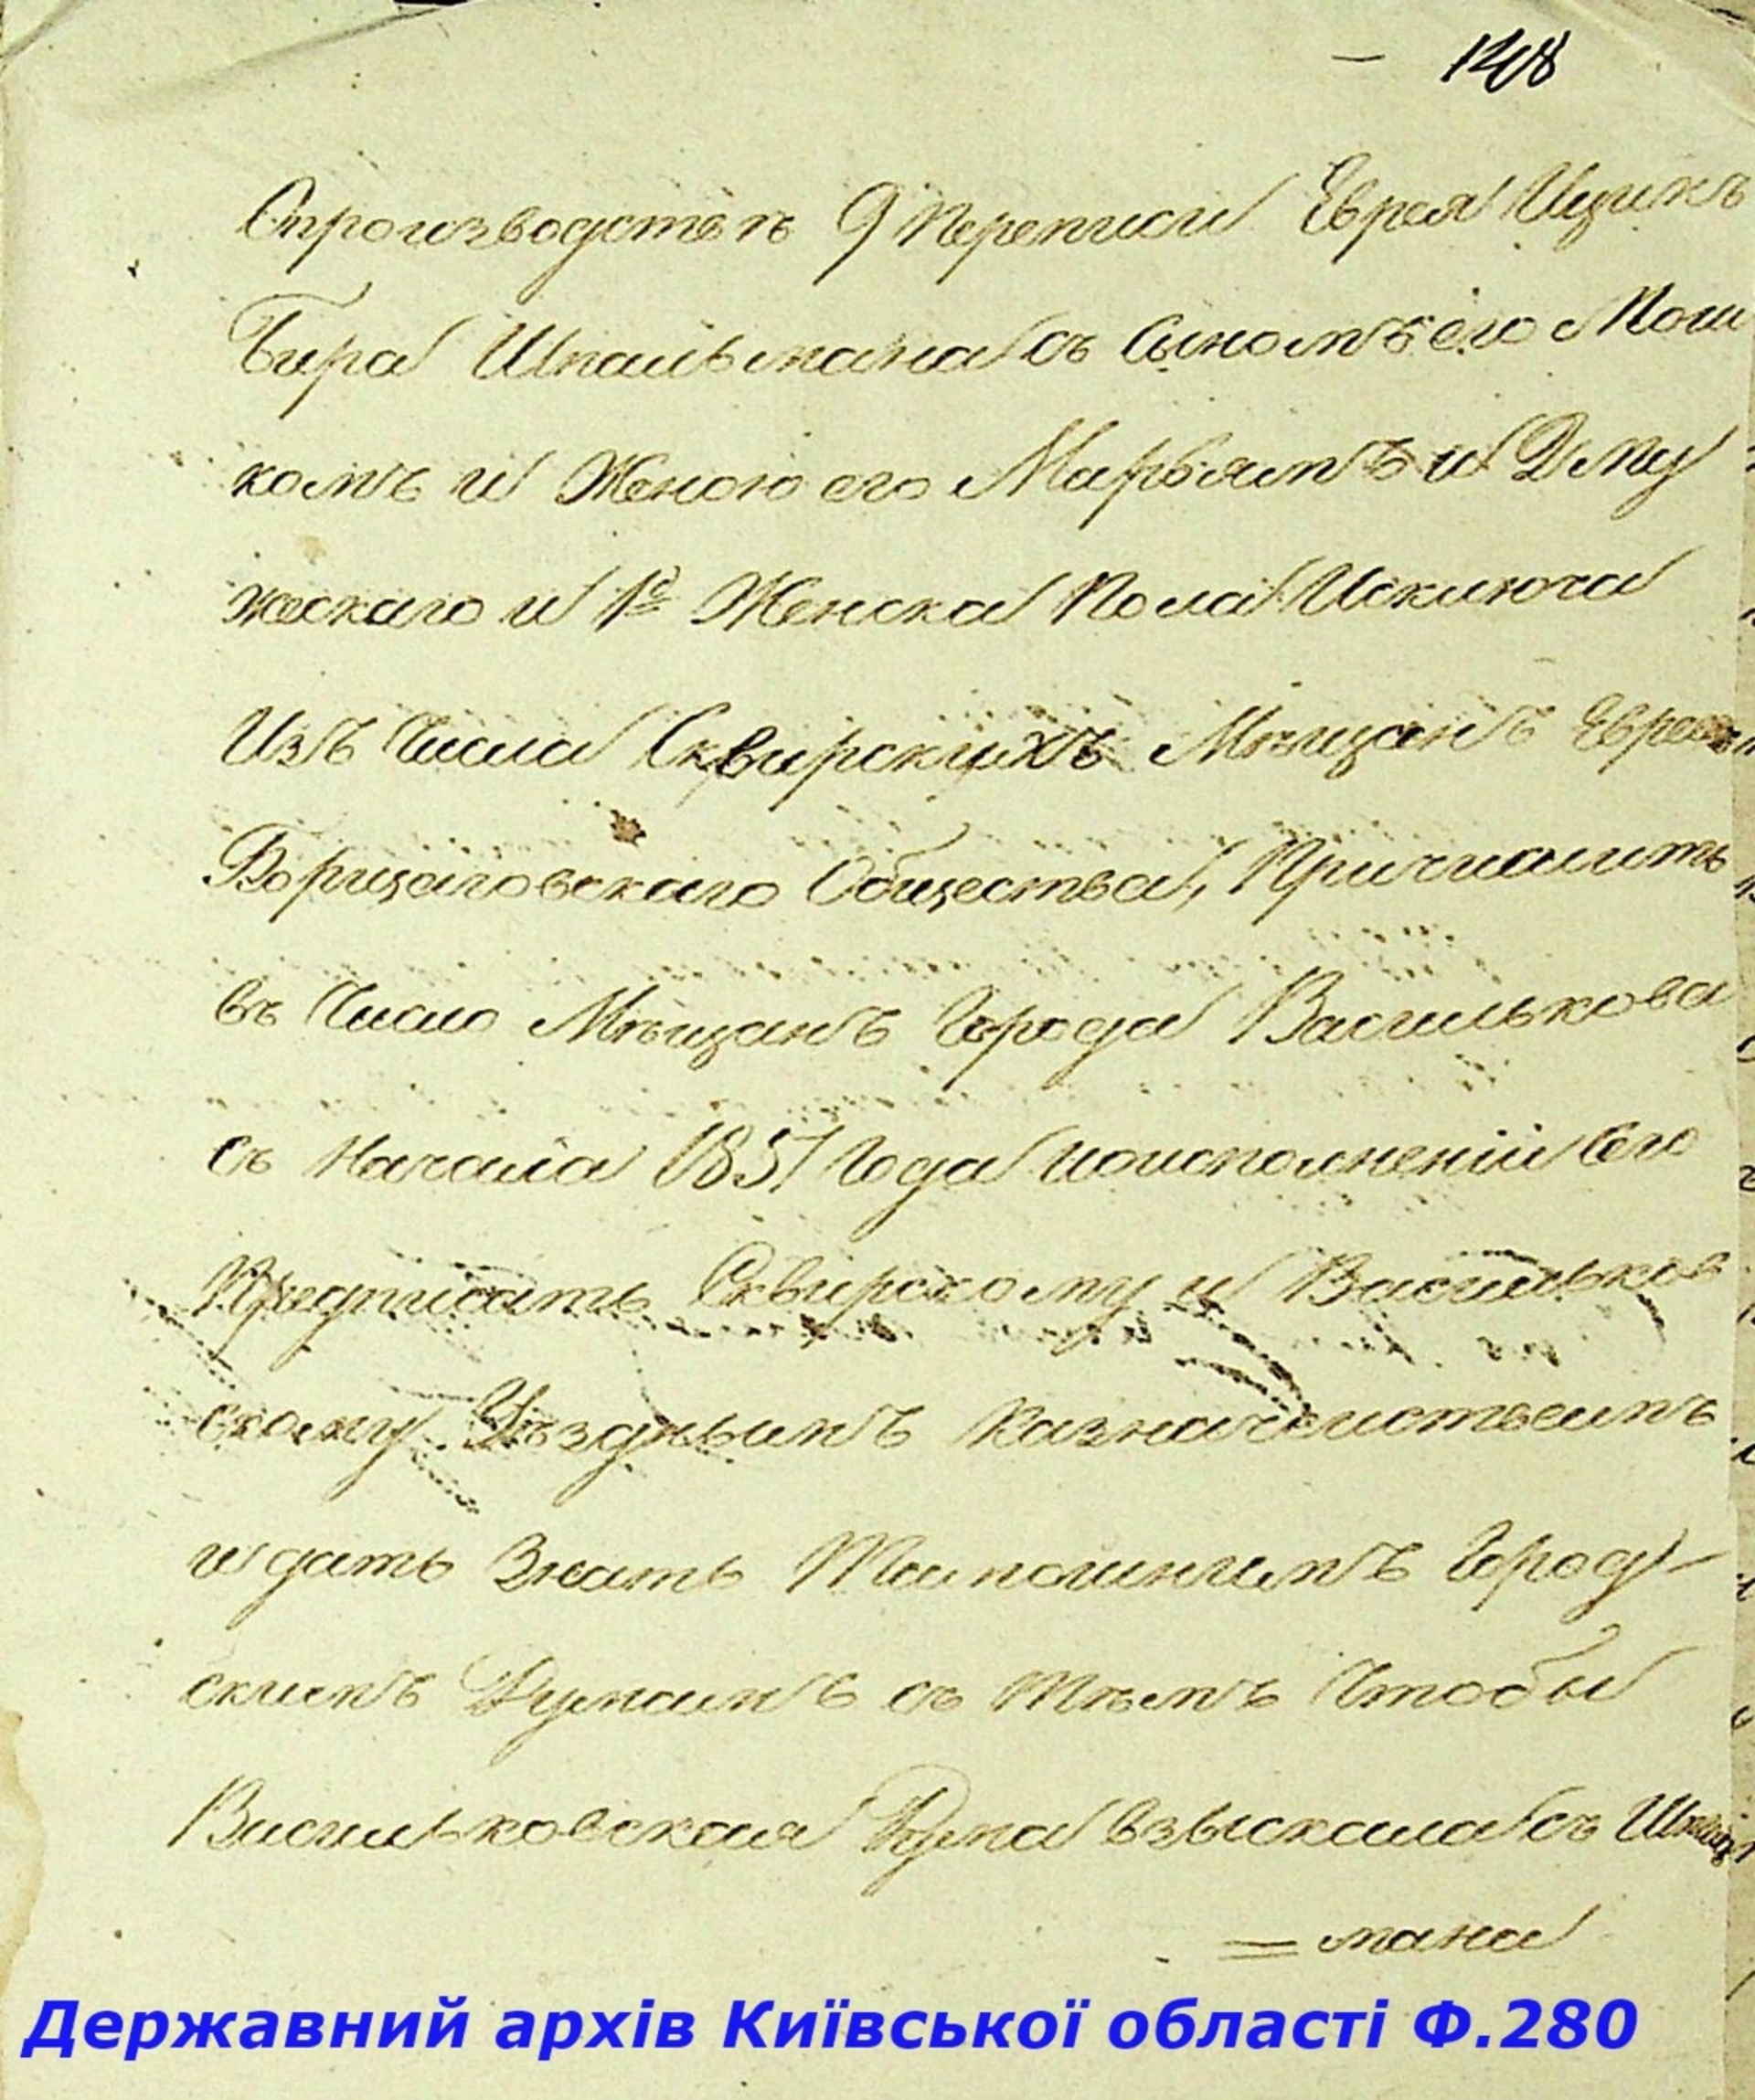 148
Опроизводствѣ 9 переписи Еврея Ицикъ
Бера Шпальмана съ Сыномъ его Мош
комъ и Женою его Марьямъ и 2 му
жескаго и 1й Женска Пола Исключа
Изъ Числа Сквирскихъ Мѣщанъ Евреевъ
Борщаговскаго Общества, Причислить
въ Число Мѣщанъ Города Василькова
съ Начала 1851 Года поисполненіи Сего
Предписать Сквирскому и Васильков
скому Уѣзднымъ Казначействамъ
и дать Знать Тамошнимъ Город-
скимъ Думамъ съ тѣмъ Чтобы
Васильковская Дума взыскала съ
= мана
Державний архів Київської області Ф.280